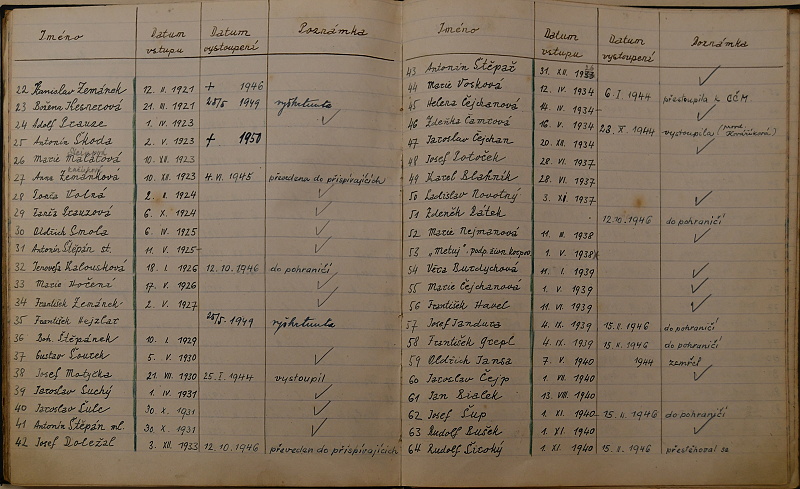 Jméno Datum vstupu Datum vystoupení Poznámka
22 Stanislav Zemánek 12. II. 1921 + 1946
23 Božena Kesnerová 21. III. 1921 25/5 1949 vyškrtnuta
24 Adolf Krause 1. IV. 1923 ✓
25 Antonín Škoda 2. V. 1923 + 1950
26 Marie Malátová 10. XII. 1923
27 Anna Zemánková 10. XII. 1923 4. VI. 1945 převedena do přispívajících
28 Volná 2. I. 1924 ✓
29 Krauzová 6. X. 1924 ✓
30 Oldřich Smola 6. IV. 1925 ✓
31 Antonín Štěpán st. 11. V. 1925 ✓
32 Jenovefa Kalousková 18. I. 1926 12.10.1946 do pohraničí
33 Marie Hořená 17. V. 1926 ✓
34 František Zemánek 2. V. 1927 ✓
35 František Hejzlar 25/5 1949 vyškrtnuta
36 Boh. Štěpánek 10. I. 1929
37 Gustav Šourek 5. V. 1930 ✓
38 Josef Matyčka 21. VII. 1930 25. I. 1944 vystoupil
39 Jaroslav Suchý 1. IV. 1931 ✓
40 Jaroslav Šulc 30. X. 1931 ✓
41 Antonín Štěpán ml. 30. X. 1931 ✓
42 Josef Doležal 3. XII. 1933 12.10.1946 převeden do přispívajících
Jméno Datum vstupu Datum vystoupení Poznámka
43 Antonín Štěpař 31. XII. ✓
44 Marie Vosková 12. IV. 1934 6. I. 1944 přestoupila k CČM
45 Helena Čejchanová 14. IV. 1934 ✓
46 Zdeňka Camrová 16. V. 1934 28. X. 1944 vystoupila
47 Jaroslav Čejchan 20. XII. 1934 ✓
48 Josef Potoček 28. VI. 1937
49 Karel Blažník 28. VI. 1937
50 Ladislav Novotný 3. XII. 1937 ✓
51 Zdeněk Žátek 12.10.1946 do pohraničí
52 Marie Nejmanová 11. II. 1938 ✓
53 „Metuj" 1. V. 1938
54 Věra Burdychová 11. I. 1939 ✓
55 Marie Čejchanová 1. V. 1939 ✓
56 František Havel 11. VI. 1939 ✓
57 Josef Jandura 4. IX. 1939 15. II. 1946 do pohraničí
58 František Grepl 4. IX. 1939 15. II. 1946 do pohraničí
59 Oldřich Jansa 7. V. 1940 1944 zemřel
60 Jaroslav Čejp 1. VII. 1940 ✓
61 Jan Bialek 13. VIII. 1940
62 Josef Šup 1. XI. 1940 15. II. 1946 do pohraničí
63 Rudolf Bušek 1. XI. 1940 ✓
64 Rudolf Široký 1. XI. 1940 15. II. 1946 přestěhoval se